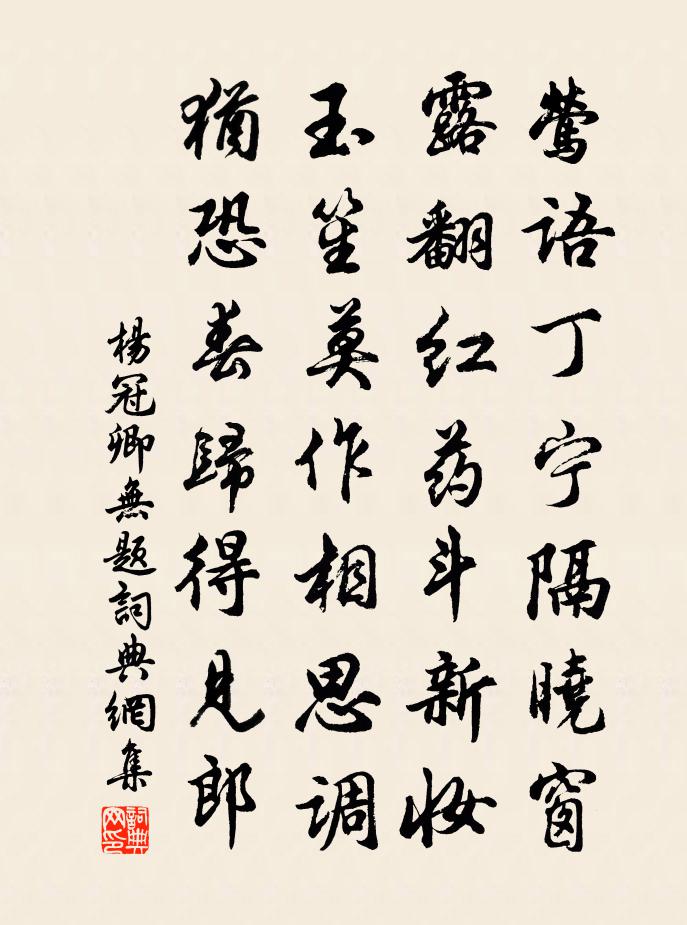 莺语丁宁隔曉窗
露翻红药斗新妆
玉笙莫作相思调
猶恐春歸得見郎
楊冠卿無题詞典網集
詞典网印